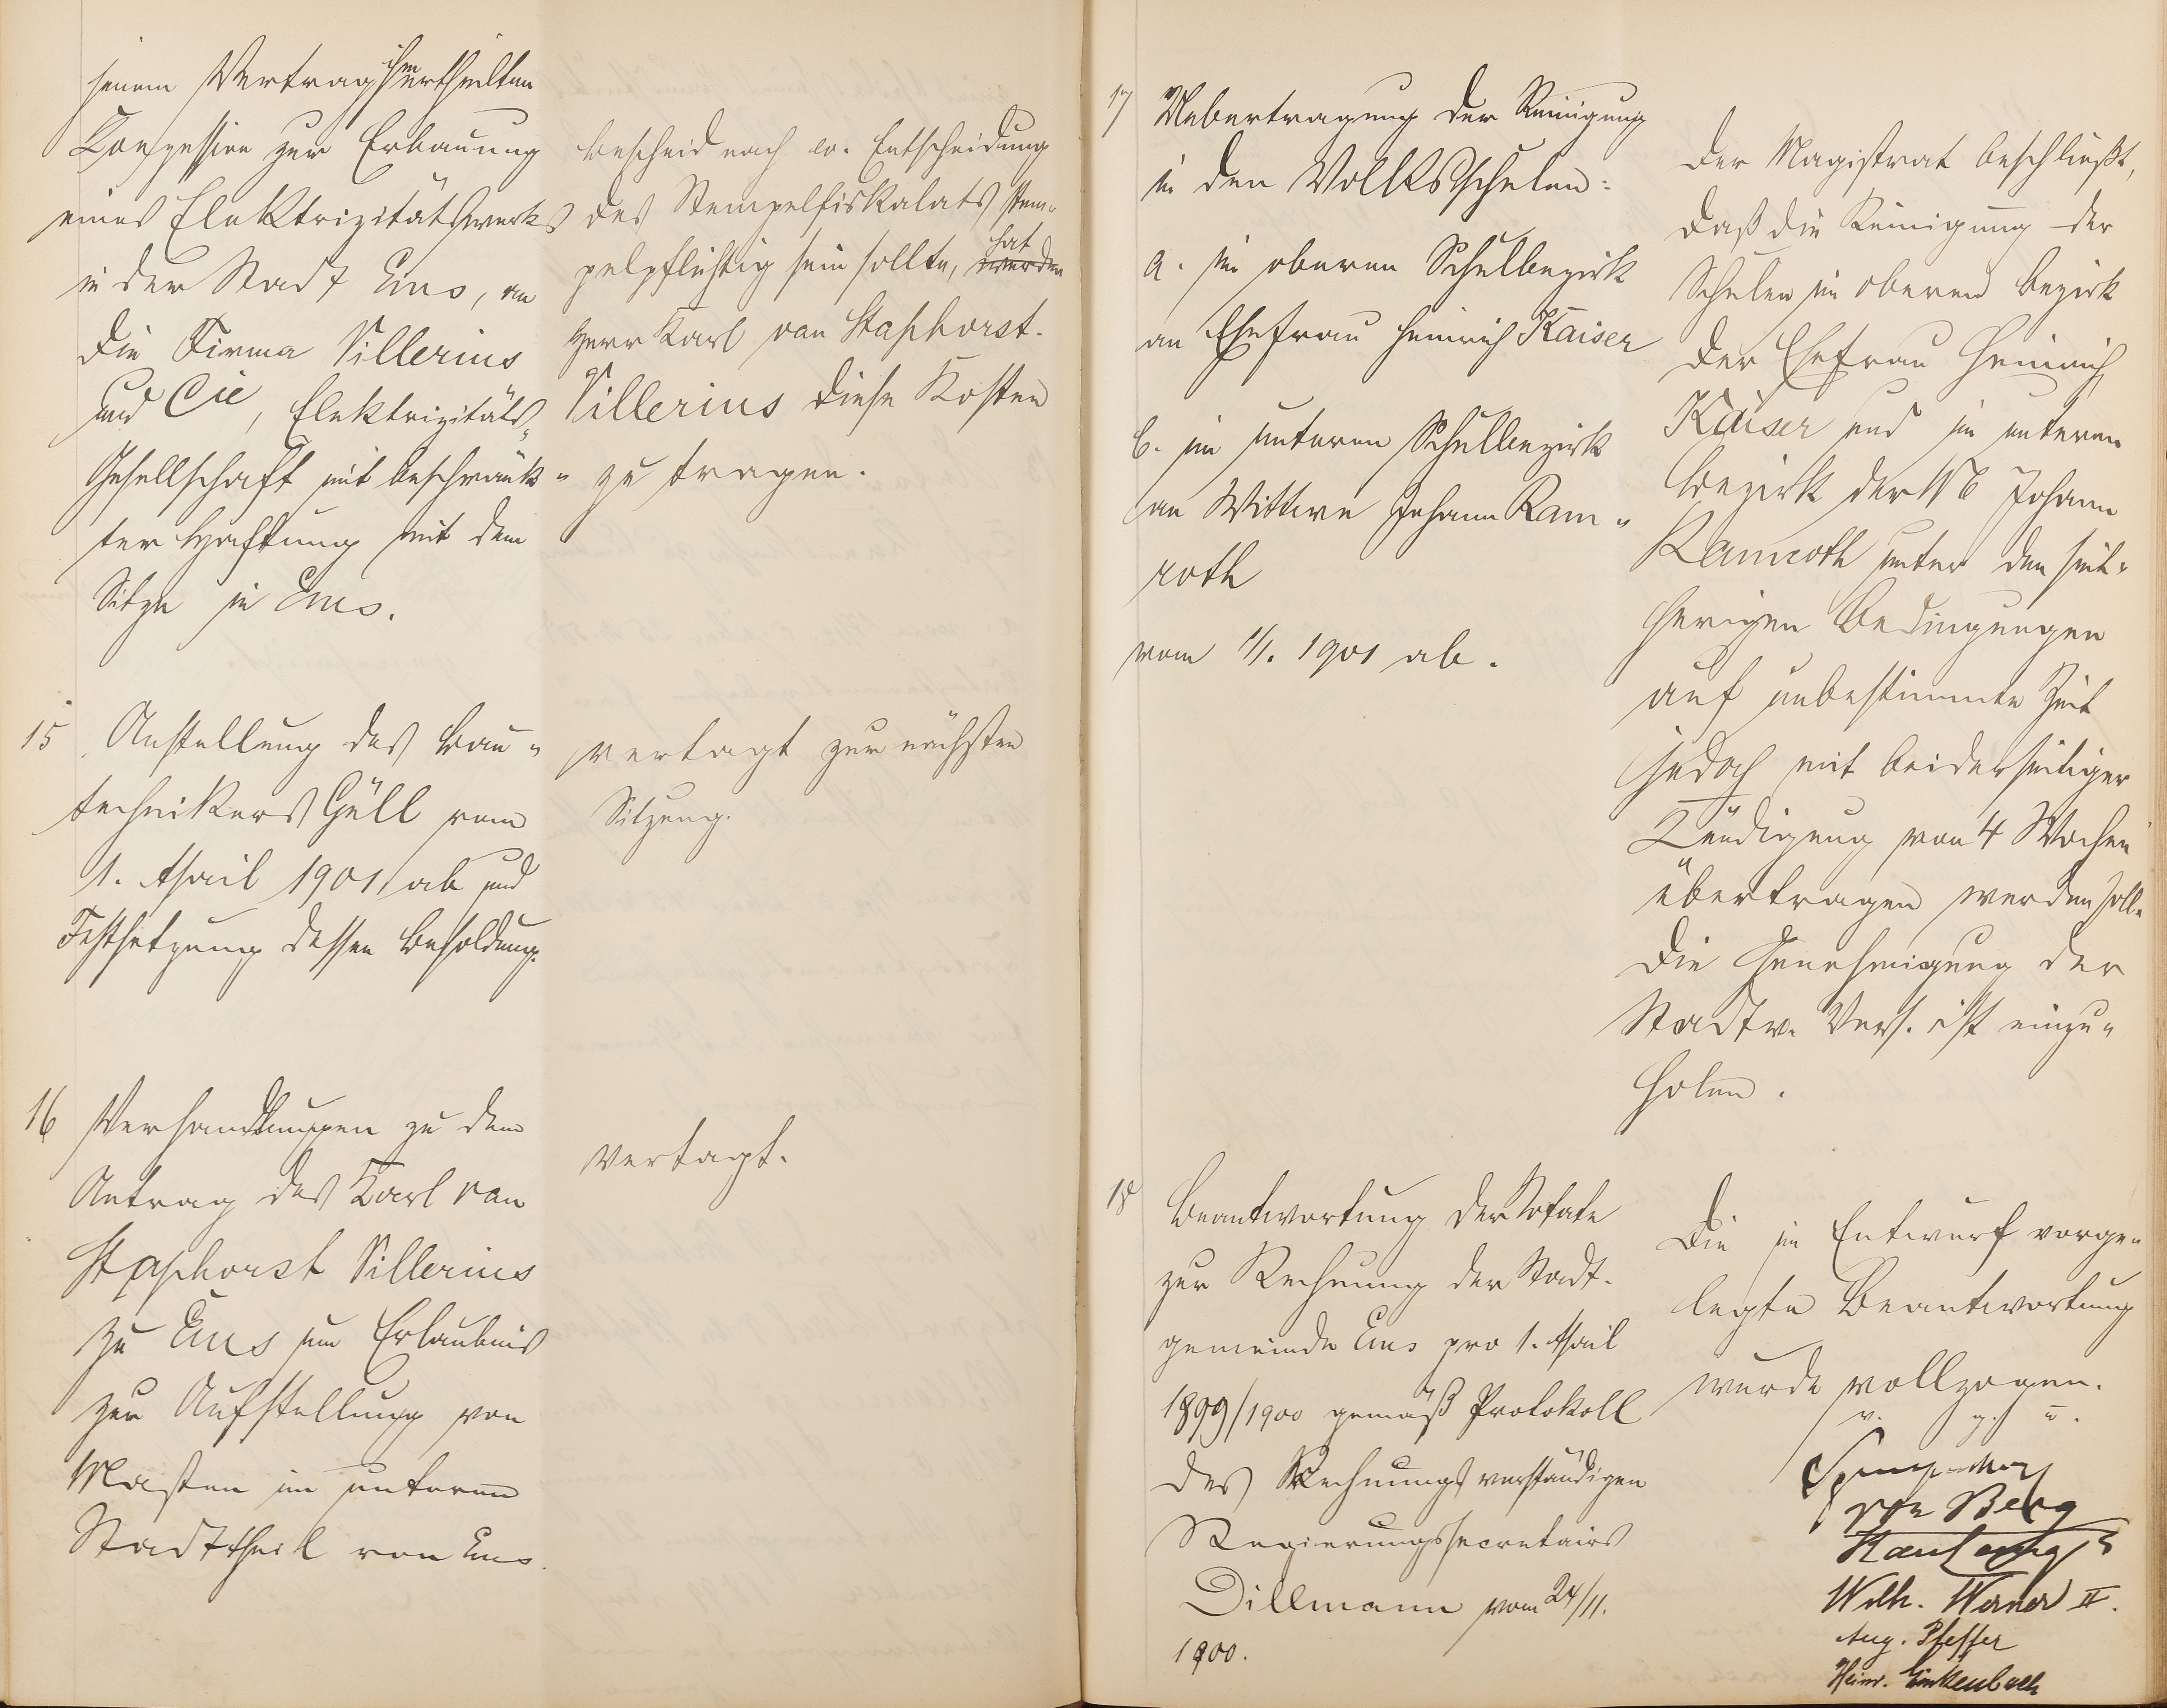 seinem Vertrag ihm ertheilten
Konzession zur Erbauung
eines Elektrizitätswerks
in der Stadt Ems, an
die Firma Villerius
und Cie, Elektrizitäts-
Gesellschaft mit beschränk-
ter Haftung mit dem
Sitze in Ems.
Bescheid nach ev. Entscheidung
des Stempelfiskalats stem-
pelpflichtig sein sollte, hat
werden
Herr Karl van Staphorst-
Villerius diese Kosten
zu tragen.
15 Anstellung des Bau-
technikers Güll vom
1. April 1901 ab und
Festsetzung dessen Besoldung.
vertagt zur nächsten
Sitzung.
16 Verhandlungen zu dem
Antrag des Karl van
Staphorst Villerius
zu Ems um Erlaubnis
zur Aufstellung von
Masten im unteren
Stadttheil von Ems.
vertagt.
17 Uebertragung der Reinigung
in den Volksschulen:
a. im oberen Schulbezirk
an Ehefrau Heinrich Kaiser
b. im unteren Schulbezirk
an Wittwe Johann Ram-
roth
vom 1/1. 1901 ab.
Der Magistrat beschließt,
daß die Reinigung der
Schulen im oberen Bezirk
der Ehefrau Heinrich
Kaiser und im unteren
Bezirk der Wb Johann
Ramroth unter den seit-
herigen Bedingungen
auf unbestimmte Zeit
jedoch mit beiderseitiger
Kündigung von 4 Wochen
übertragen werden soll.
Die Genehmigung der
Stadtv. Vers. ist einzu-
holen.
18 Beantwortung der Notate
zur Rechnung der Stadt-
gemeinde Ems pro 1. April
1899/1900 gemäß Protokoll
des Rechnungsverständigen
Regierungssecretairs
Dillmann vom 24/11.
1900.
Die im Entwurf vorge-
legte Beantwortung
wurde vollzogen.
v. g. u.
von Berg
Wilh. Werner II.
Aug. Pfeffer
Heinr. Linkenbach